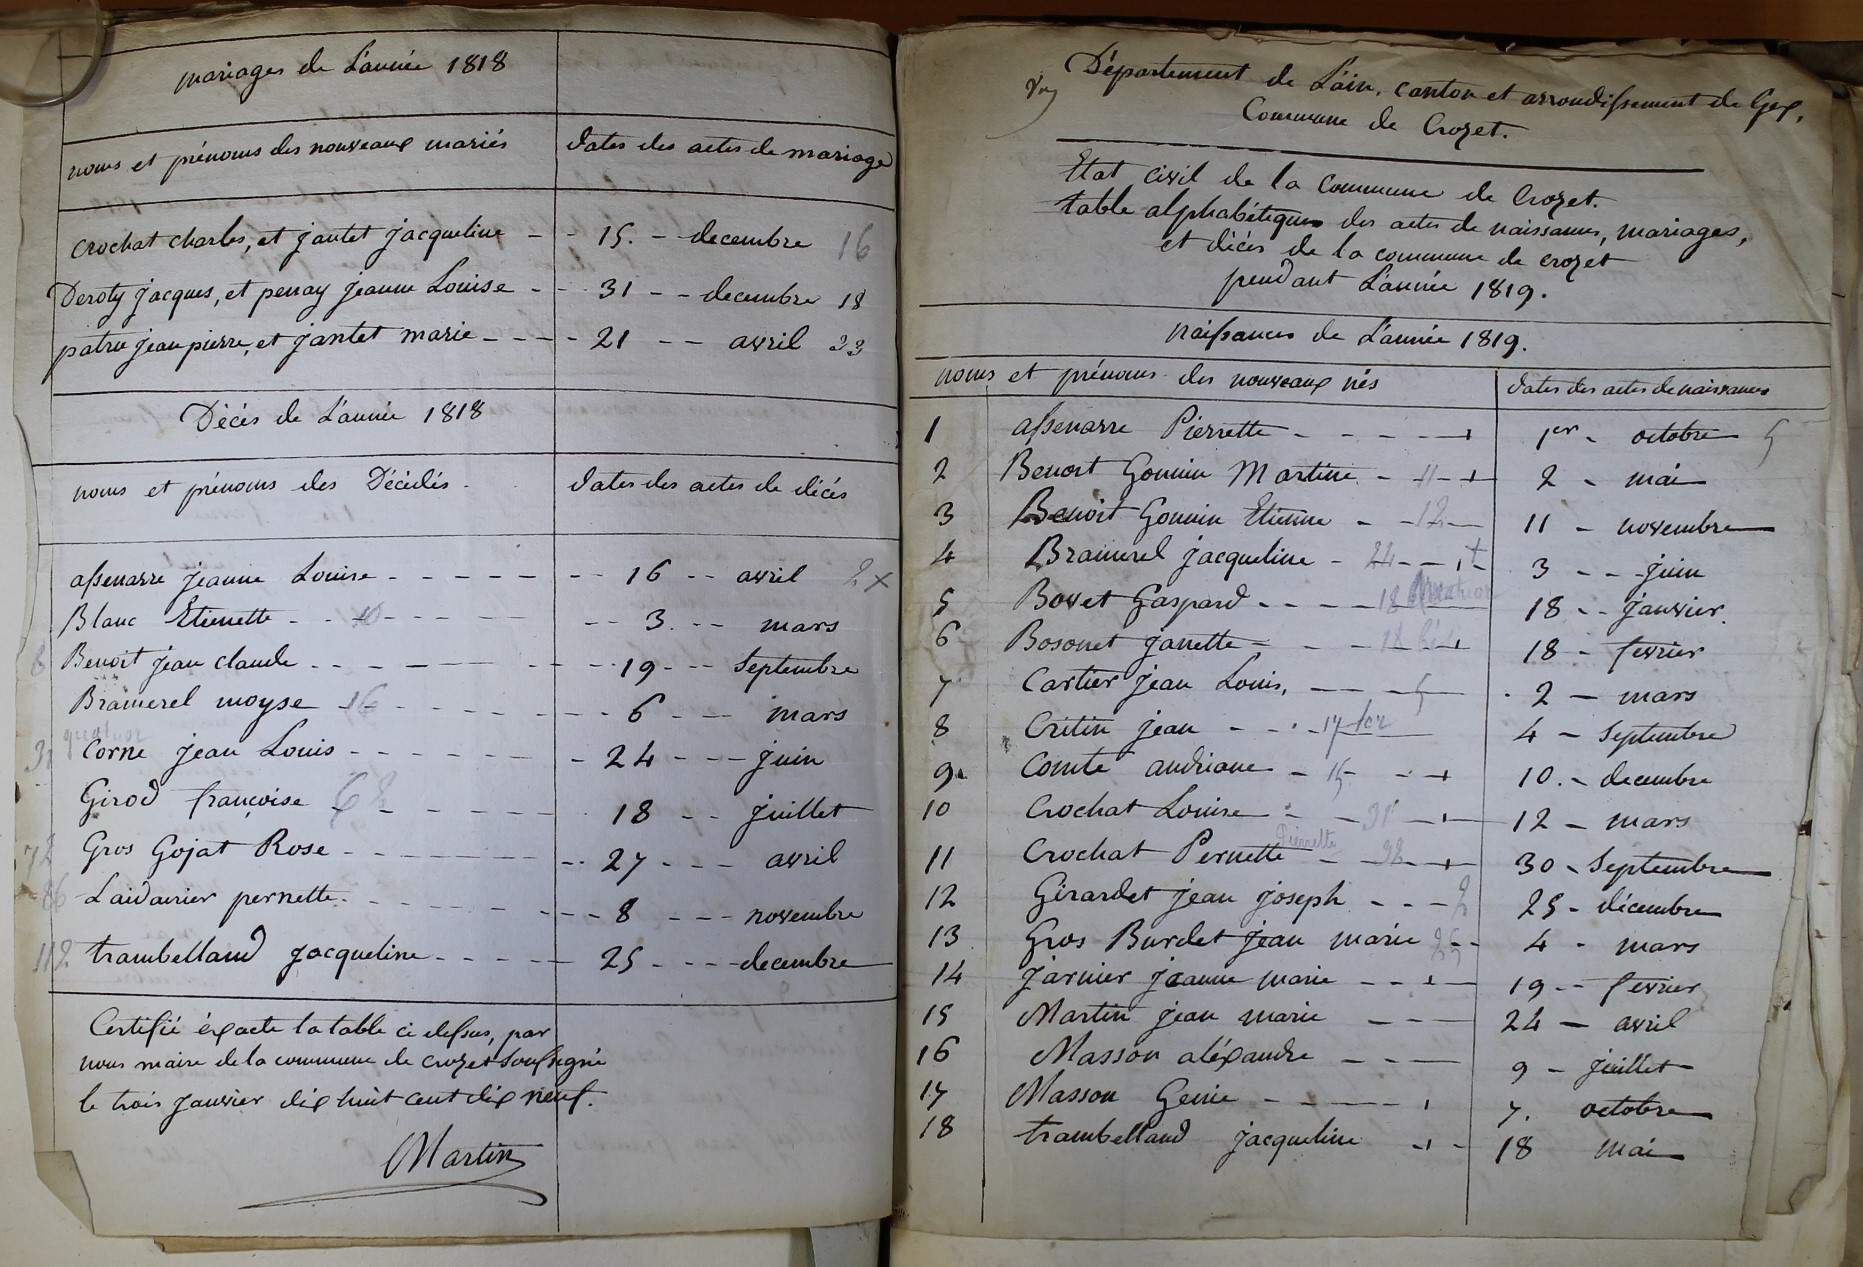 mariages de L'année 1818
noms et prénoms des nouveaux mariés dates des actes de mariage
crochat charles, et jantet jacqueline - - 15. - decembre 16
Deroty jacques, et penay jeanne Louise - - 31 - - decembre 18
patru jean pierre, et jantet marie - - - - 21 - - avril 23
Décés de L'année 1818
noms et prénoms des Décédés. dates des actes de décés
assenarre jeanne Louise - - - - - - - 16 - - avril 2 x
Blanc Etienette - - 10 - - - - - - 3. - - mars
8 Benoit jean claude - - - - - - - 19 - - - Septembre
Bramerel moyse - 16 - - - - - - - 6 - - - mars
31 Corne jean Louis - - - - - - - 24 - - - juin
Girod françoise 62 - - - - - 18 - - juillet
72 Gros Gojat Rose - - - - - - - - 27 - - - avril
86 Laidavrier pernette - - - - - - - - 8 - - - novembre
112 trambelland jacqueline - - - - - 25 - - - - decembre
Certifié éxacte la table ci dessus, par
nous maire de la commune de crozet Soussigné
le trois janvier dix huit cent dix neuf.
Martin
Département de L'ain, canton et arrondissement de Gex,
Commune de Crozet.
Etat civil de la commune de Crozet.
table alphabétique des actes de naissances, mariages,
et décés de la commune de crozet
pendant L'année 1819.
naissances de L'année 1819.
noms et prénoms des nouveaux nés dates des actes de naissances
1 assenarre Pierrette - - - - - 1er - octobre 5
2 Benoit Gonnin Martine - 11 - 2 - mai
3 Benoit Gonnin Etienne - - 12 - 11 - novembre
4 Bramerel jacqueline - 24 - - 3 - - juin
5 Bovet Gaspard - - - - 18 18 - - janvier.
6 Bosonet janette - - 18 bis 18 - fevrier
7 Cartier jean Louis, - - - 5 2 - mars
8 Critin jean - - - 17 ter 4 - Septembre
9 Comte andriane - 15 - - 10. - decembre
10 Crochat Louise - - 31 - 12 - mars
Pierrette
11 Crochat Pernette - 32 - 30 - Septembre
12 Girardet jean joseph - - - 2 25 - décembre
13 Gros Burdet jean marie 25 - - 4 - mars
14 jarnier jeanne marie - - - 19 - - fevrier
15 Martin jean marie - - - 24 - avril
16 Masson aléxandre - - - 9 - juillet
17 Masson Genie - - - - - 7. octobre
18 trambelland jacqueline - - 18 mai